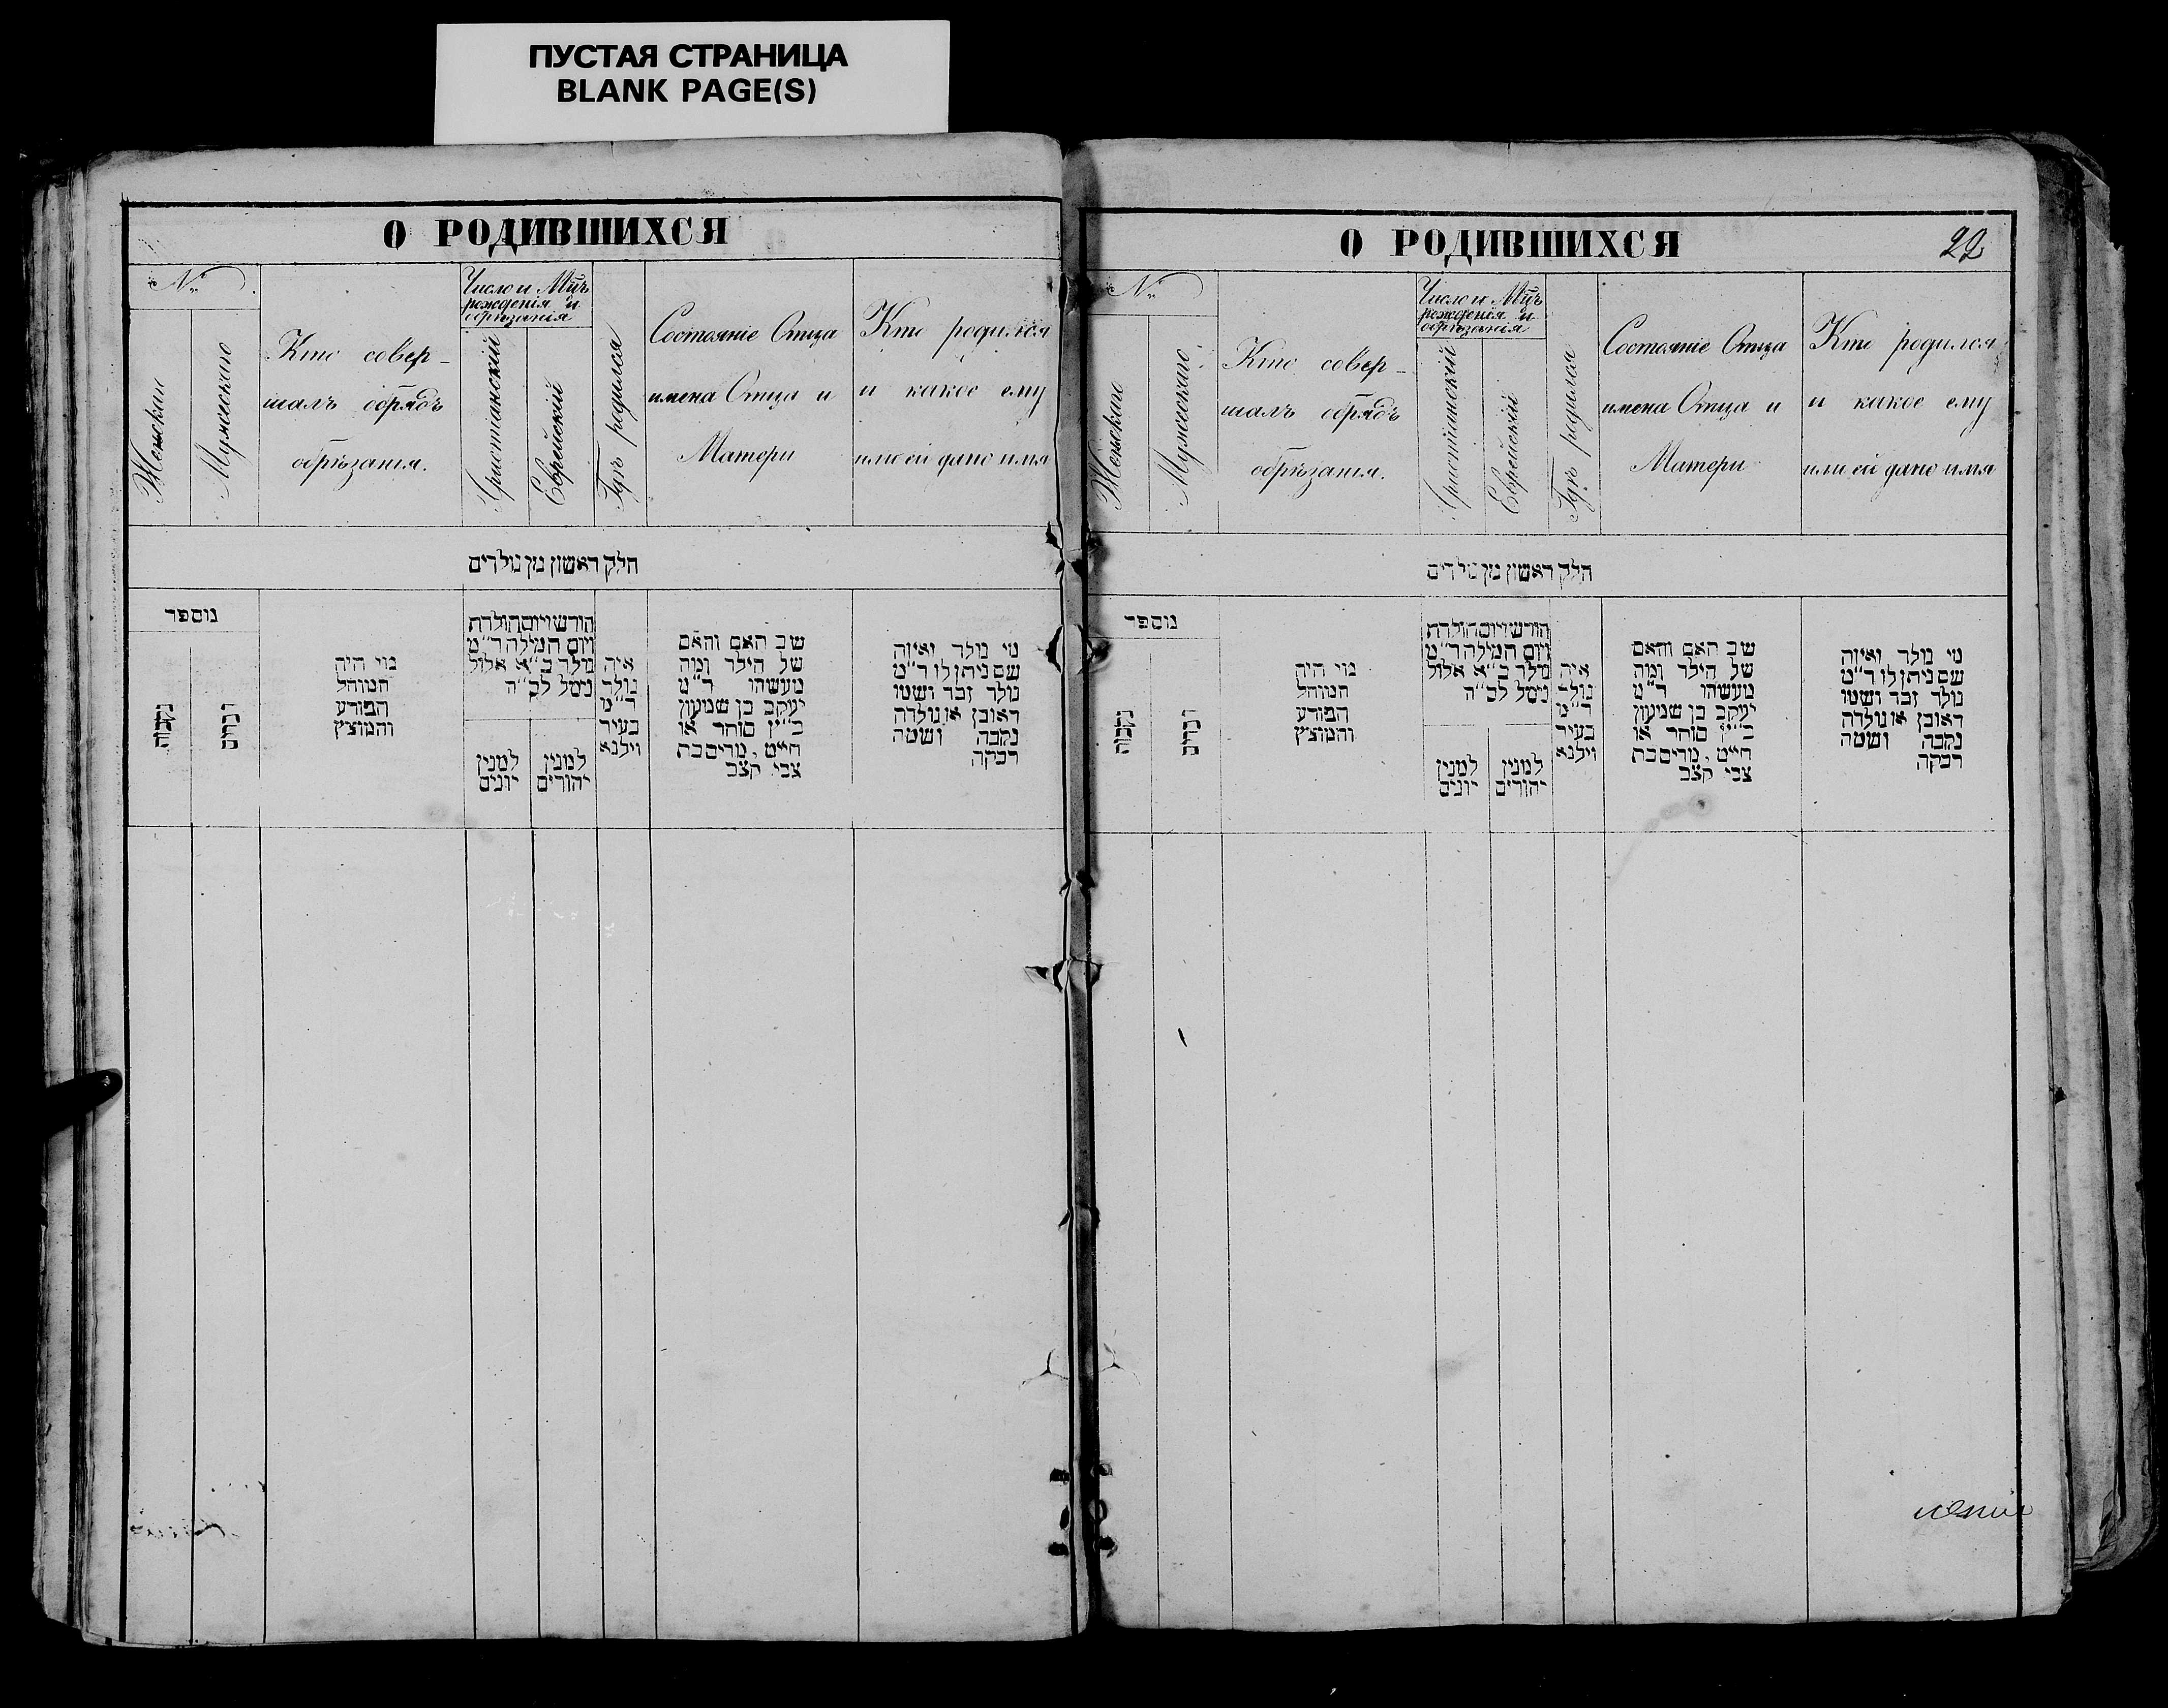 ПУСТАЯ СТРАНИЦА
BLANK PAGE(S)
О РОДИВШИХСЯ
№
Женскаго
Мужескаго
Кто совер-
шалъ обрядъ
обрѣзанія.
Число и Мѣц҃ъ
рожденія и
обрѣзанія
Христіанскій
Еврейскій
Гдѣ родился
Состояніе Отца
имена Отца и
Матери
Кто родился
и какое ему
или ей дано имя
חלק ראשון מן נולדים
נוספר
נקבות
זכרים
מי היה
המוהל
הפורע
והמוצץ
חורש ויום הולדת
ויום המילה ד״מ
נולד ב״א אלול
נימל לב״ה
למנין
יונים
למנין
יהודים
איה
נולד
ד״מ
בעיר
וילנא
שב האב והאם
של הילד ומה
מעשהו ד״מ
יעקב בן שמעון
כ״ץ סוחר או
חייט, מרים בת
צבי קצב
מי נולד ואיזה
שם ניתן לו ד״מ
נולד זכר ושמו
ראובן או נולדה
נקבה ושמה
רבקה
О РОДИВШИХСЯ
22
№
Женскаго
Мужескаго
Кто совер-
шалъ обрядъ
обрѣзанія.
Число и Мѣц҃ъ
рожденія и
обрѣзанія
Христіанскій
Еврейскій
Гдѣ родился
Состояніе Отца
имена Отца и
Матери
Кто родился
и какое ему
или ей дано имя
חלק ראשון מן נולדים
נוספר
נקבות
זכרים
מי היה
המוהל
הפורע
והמוצץ
חורש ויום הולדת
ויום המילה ד״מ
נולד ב״א אלול
נימל לב״ה
למנין
יונים
למנין
יהודים
איה
נולד
ד״מ
בעיר
וילנא
שב האב והאם
של הילד ומה
מעשהו ד״מ
יעקב בן שמעון
כ״ץ סוחר או
חייט, מרים בת
צבי קצב
מי נולד ואיזה
שם ניתן לו ד״מ
נולד זכר ושמו
ראובן או נולדה
נקבה ושמה
רבקה